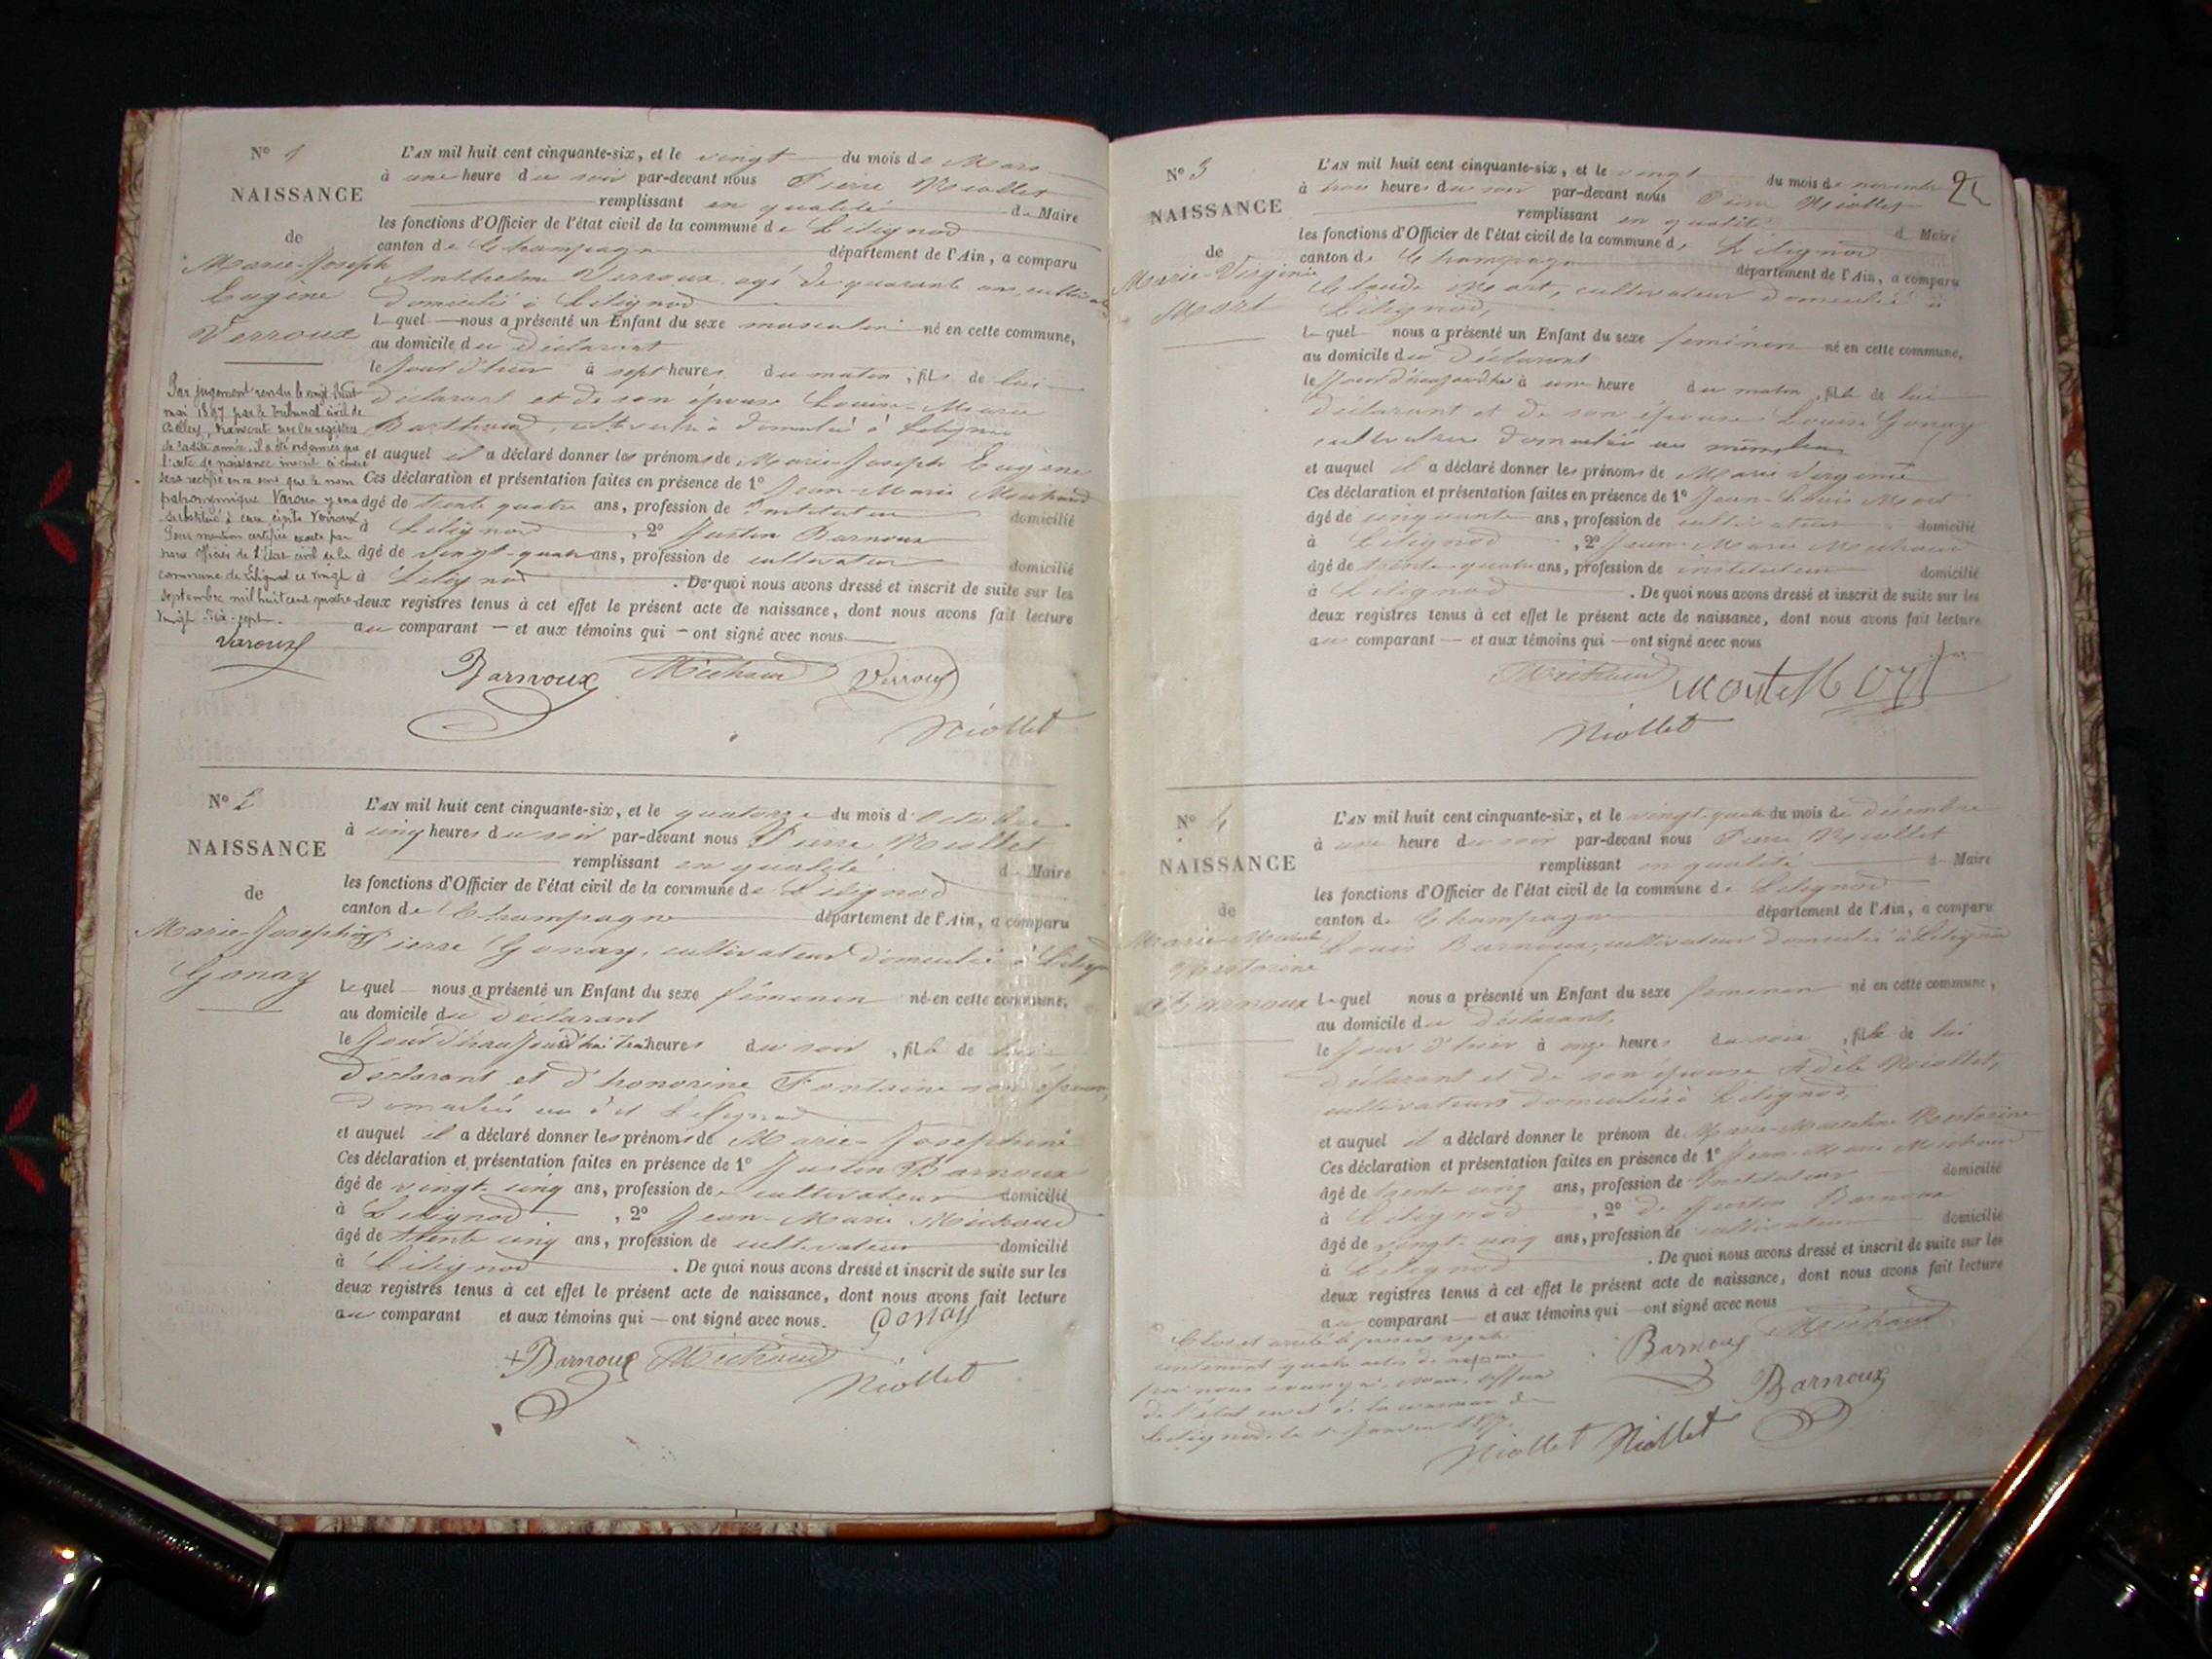 N° 1
NAISSANCE
de
Marie-Joseph
Eugène
Verroux
L'AN mil huit cent cinquante-six, et le vingt du mois de Mars
à une heure du soir par-devant nous Pierre Niollet
remplissant en qualité de Maire
les fonctions d'Officier de l'état civil de la commune de Lilignod
canton de Champagne département de l'Ain, a comparu
Anthelme Verroux agé de quarante ans, cultivateur
domicilié à Lilignod
Lequel nous a présenté un Enfant du sexe masculin né en cette commune,
au domicile du déclarant
le jour d'hier à sept heures du matin, fils de lui
déclarant et de son épouse Louise-Marie
domicilié à Lilignod
et auquel il a déclaré donner les prénoms de Marie-Joseph Eugène
Ces déclaration et présentation faites en présence de 1° Jean-Marie Michaud
âgé de trente quatre ans, profession de Instituteur domicilié
à Lilignod, 2° Justin Barnoux
âgé de vingt-quatre ans, profession de cultivateur domicilié
à Lilignod. De quoi nous avons dressé et inscrit de suite sur les
deux registres tenus à cet effet le présent acte de naissance, dont nous avons fait lecture
au comparant et aux témoins qui ont signé avec nous
Par jugement rendu le vingt huit
mai 1897 par le tribunal civil de
Belley, transcrit sur les registres
de ladite année, il a été ordonné que
l'acte de naissance inscrit ci-contre
sera rectifié en ce sens que le nom
patronymique Varoux y sera
substitué à celui écrit Verroux
Pour mention certifiée exacte par
nous Officier de l'état civil de la
commune de Lilignod ce vingt
septembre mil huit cent quatre-
vingt dix-sept.
Varoux
Barnoux Michaud Verroux
Niollet
N° 2
NAISSANCE
de
Marie-Joséphine
Gonay
L'AN mil huit cent cinquante-six, et le quatorze du mois d'Octobre
à cinq heures du soir par-devant nous Pierre Niollet
remplissant en qualité de Maire
les fonctions d'Officier de l'état civil de la commune de Lilignod
canton de Champagne département de l'Ain, a comparu
Pierre Gonay, cultivateur domicilié à Lilignod
Lequel nous a présenté un Enfant du sexe féminin né en cette commune,
au domicile du déclarant
le jour d'haujourd'hui à trois heures du soir, fille de lui
déclarant et d'honorine Fontaine son épouse,
domiciliés au dit Lilignod
et auquel il a déclaré donner les prénoms de Marie-Joséphine
Ces déclaration et présentation faites en présence de 1° Justin Barnoux
âgé de vingt-cinq ans, profession de cultivateur domicilié
à Lilignod, 2° Jean-Marie Michaud
âgé de trente cinq ans, profession de cultivateur domicilié
à Lilignod. De quoi nous avons dressé et inscrit de suite sur les
deux registres tenus à cet effet le présent acte de naissance, dont nous avons fait lecture
au comparant et aux témoins qui ont signé avec nous. Gonay
Barnoux Michaud
Niollet
2
N° 3
NAISSANCE
de
Marie-Virginie
Mort
L'AN mil huit cent cinquante-six, et le vingt du mois de novembre
à trois heures du soir par-devant nous Pierre Niollet
remplissant en qualité de Maire
les fonctions d'Officier de l'état civil de la commune de Lilignod
canton de Champagne département de l'Ain, a comparu
Claude Mort, cultivateur domicilié à
Lilignod,
Lequel nous a présenté un Enfant du sexe féminin né en cette commune,
au domicile du déclarant
le jour d'haujourd'hui à une heure du matin, fille de lui
déclarant et de son épouse Louise Gonay
cultivateurs domiciliés au même lieu
et auquel il a déclaré donner les prénoms de Marie Virginie
Ces déclaration et présentation faites en présence de 1° Jean-Louis Mort
âgé de cinquante ans, profession de cultivateur domicilié
à Lilignod, 2° Jean-Marie Michaud
âgé de trente-quatre ans, profession de instituteur domicilié
à Lilignod. De quoi nous avons dressé et inscrit de suite sur les
deux registres tenus à cet effet le présent acte de naissance, dont nous avons fait lecture
au comparant et aux témoins qui ont signé avec nous
Michaud Mort Mort
Niollet
N° 4
NAISSANCE
de
Barnoux
L'AN mil huit cent cinquante-six, et le vingt-quatre du mois de décembre
à une heure du soir par-devant nous Pierre Niollet
remplissant en qualité de Maire
les fonctions d'Officier de l'état civil de la commune de Lilignod
canton de Champagne département de l'Ain, a comparu
Louis Barnoux, cultivateur domicilié à Lilignod
Lequel nous a présenté un Enfant du sexe féminin né en cette commune,
au domicile du déclarant,
le jour d'hier à onze heures du soir, fille de lui
déclarant et de son épouse Adèle Niollet,
cultivateurs domiciliés à Lilignod,
et auquel il a déclaré donner le prénom de Marie
Ces déclaration et présentation faites en présence de 1° Jean-Marie Michaud
âgé de trente cinq ans, profession de Instituteur domicilié
à Lilignod, 2° de Justin Barnoux
âgé de vingt-cinq ans, profession de cultivateur domicilié
à Lilignod. De quoi nous avons dressé et inscrit de suite sur les
deux registres tenus à cet effet le présent acte de naissance, dont nous avons fait lecture
au comparant et aux témoins qui ont signé avec nous
Clos et arrêté le présent registre
contenant quatre actes de naissance
par nous soussigné, Maire, officier
de l'état civil de la commune de
Lilignod, le 1er Janvier 1857.
Barnoux Michaud
Barnoux
Niollet Niollet